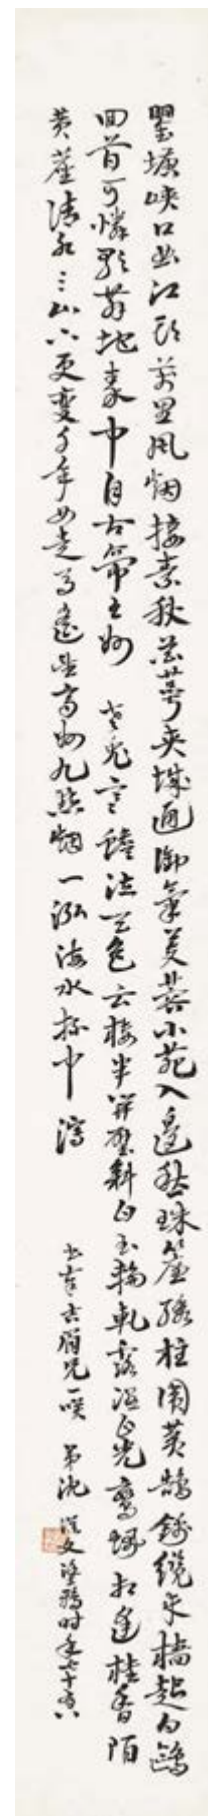 瞿塘峽口曲江頭萬里風烟接素秋花萼夾城通御氣芙蓉小苑入邊愁珠簾繡柱圍黃鵠錦纜牙檣起白鷗
回首可憐歌舞地秦中自古帝王州 老兔寒蟾泣天色云樓半開壁斜白玉輪軋露濕團光鸞珮相逢桂香陌
黃塵清水三山下更變千年如走馬遙望齊州九點烟一泓海水杯中瀉 書奉 兄一 弟沈從文塗鴉時年七十